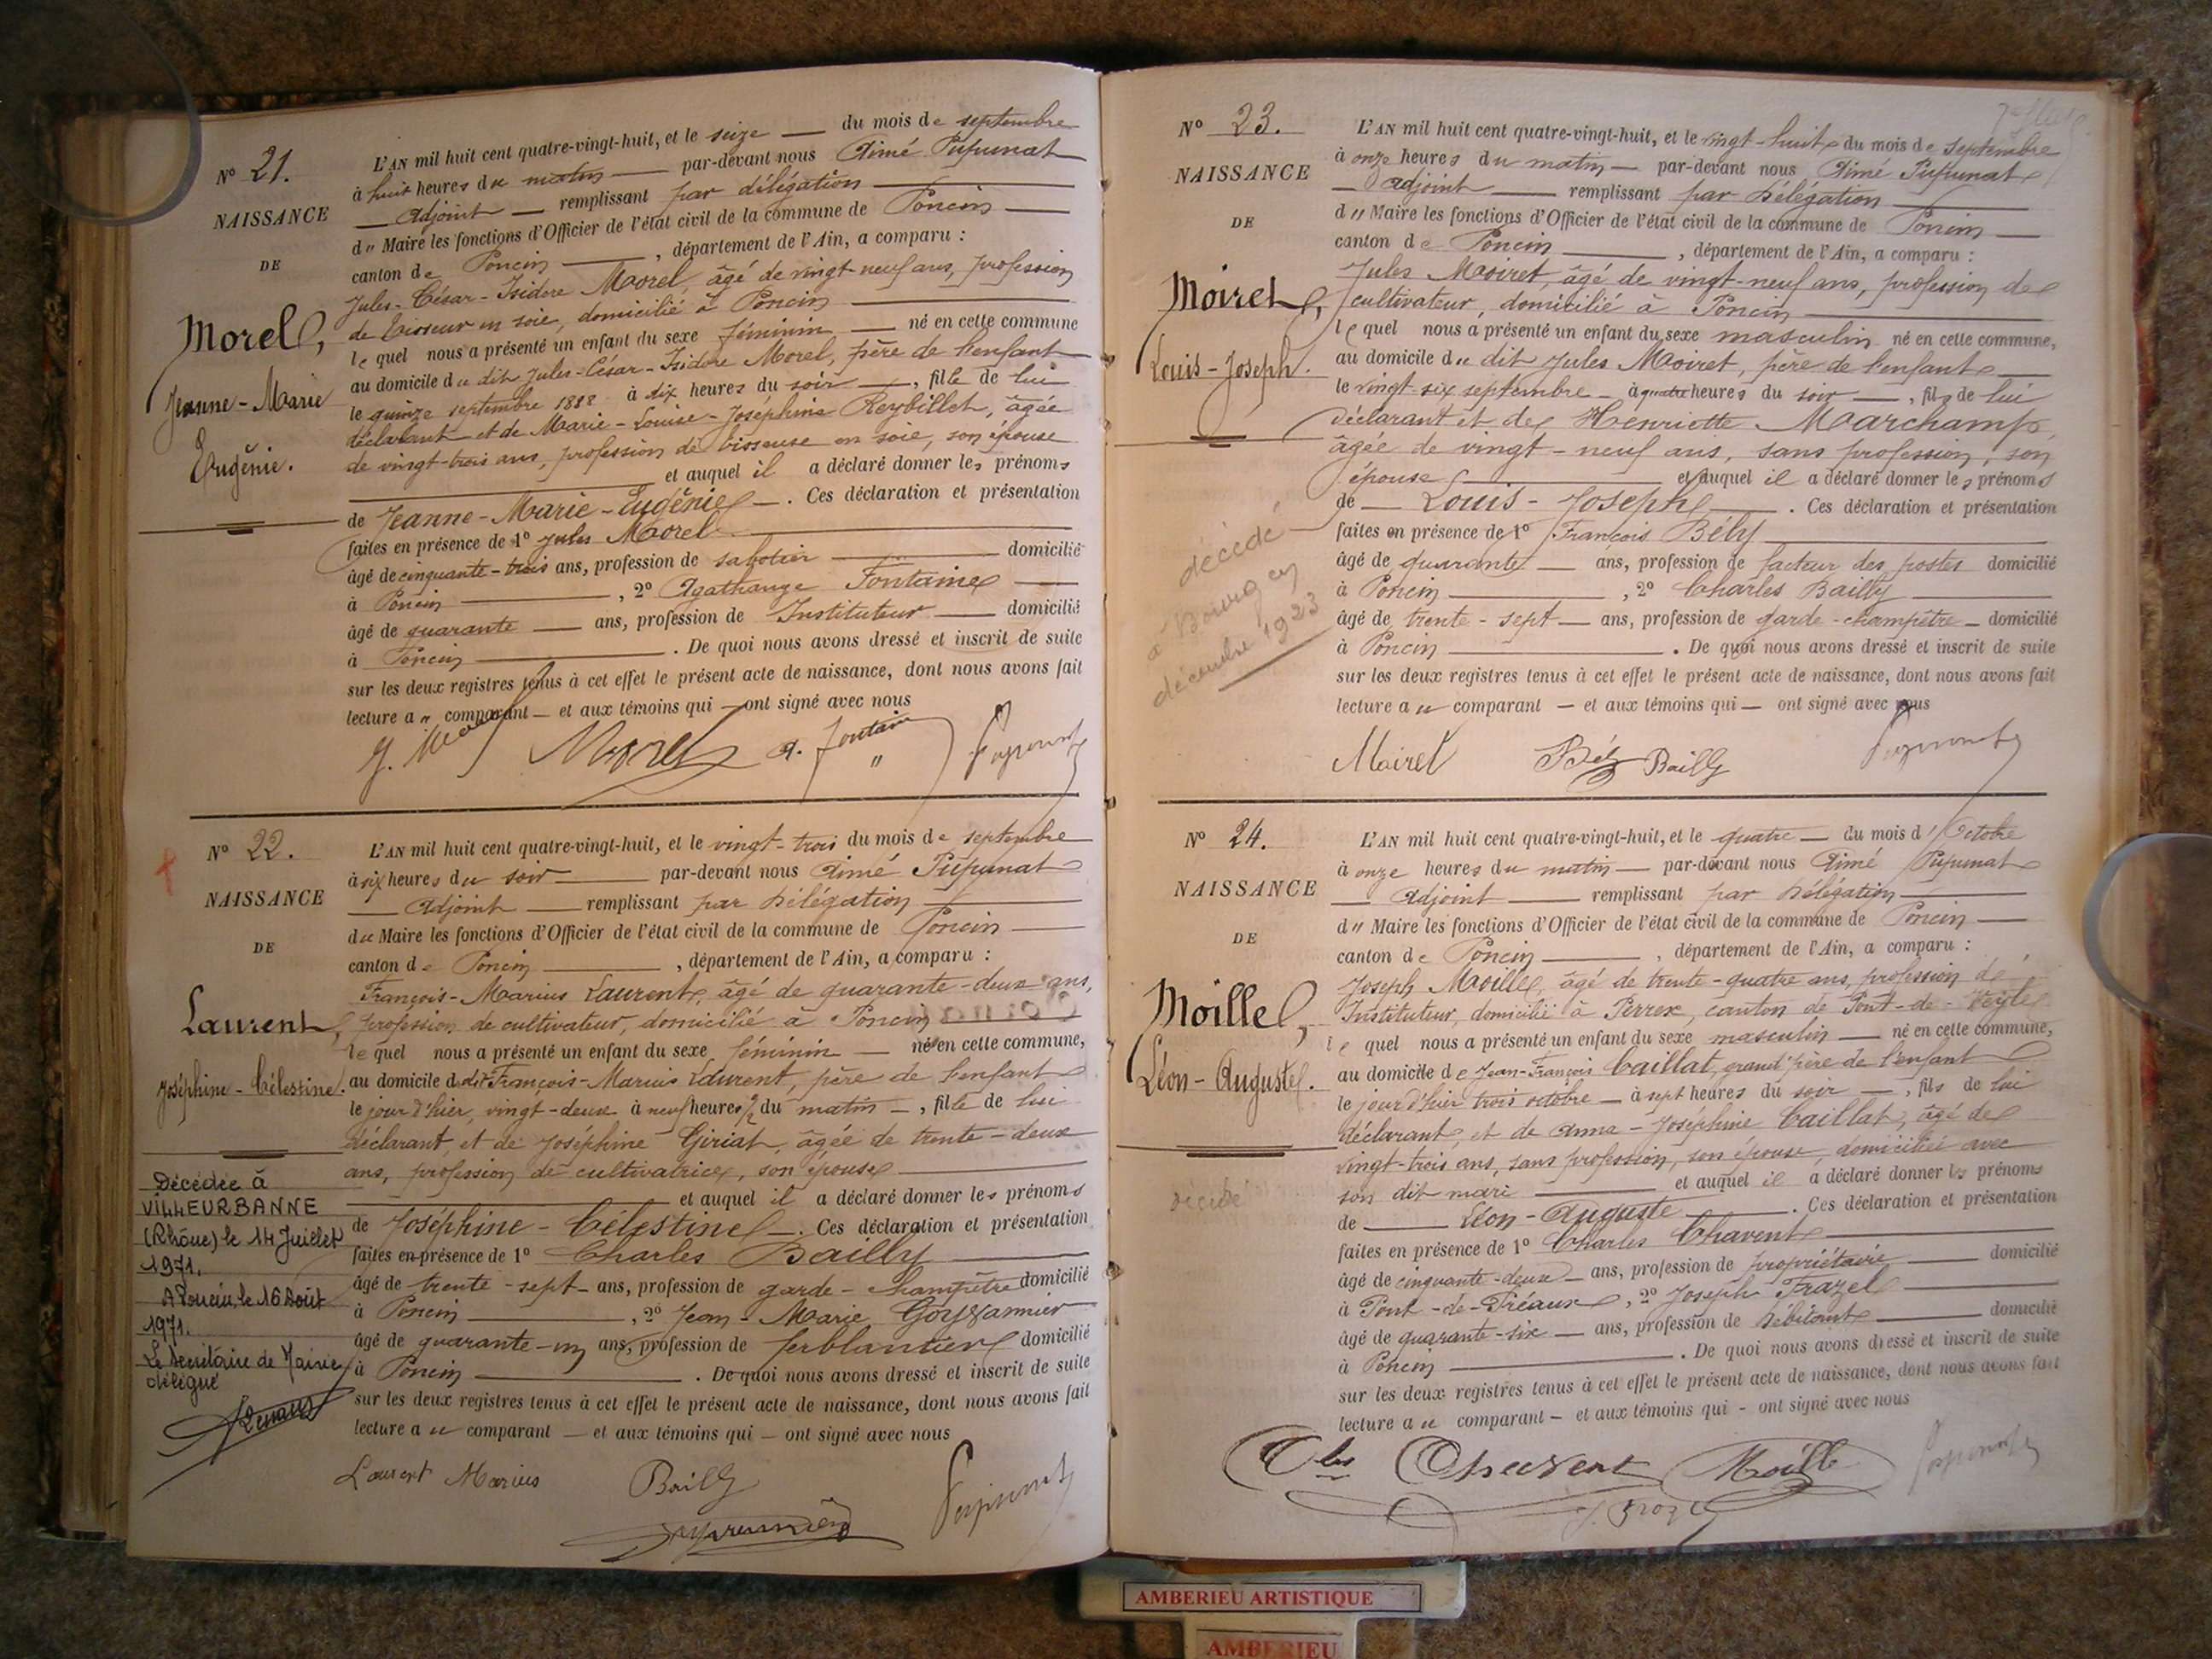 N° 21.
NAISSANCE
DE
Morel,
Jeanne-Marie
Eugénie.
L'AN mil huit cent quatre-vingt-huit, et le seize — du mois de septembre
à huit heures du matin — par-devant nous Aimé Pupunat
— Adjoint — remplissant par délégation —
d" Maire les fonctions d'Officier de l'état civil de la commune de Poncin —
canton de Poncin — , département de l'Ain, a comparu :
Jules-César-Isidore Morel, âgé de vingt-neuf ans, profession
de tisseur en soie, domicilié à Poncin —
lequel nous a présenté un enfant du sexe féminin — né en cette commune
au domicile du dit Jules-César-Isidore Morel, père de l'enfant
le quinze septembre 1888 à dix heures du soir —, fille de lui
déclarant et de Marie-Louise-Joséphine Reybillet, âgée
de vingt-trois ans, profession de tisseuse en soie, son épouse
— et auquel il a déclaré donner les prénoms
de Jeanne-Marie-Eugénie —. Ces déclaration et présentation
faites en présence de 1° Jules Morel —
âgé de cinquante-trois ans, profession de sabotier — domicilié
à Poncin — , 2° Agathange Fontaine —
âgé de quarante — ans, profession de Instituteur — domicilié
à Poncin — . De quoi nous avons dressé et inscrit de suite
sur les deux registres tenus à cet effet le présent acte de naissance, dont nous avons fait
lecture a" comparant — et aux témoins qui — ont signé avec nous
J. Morel Morel A. Fontaine Pupunat
N° 22.
NAISSANCE
DE
Laurent,
Joséphine-Célestine.
Décédée à
VILLEURBANNE
(Rhône) le 14 Juillet
1971.
A Poncin, le 16 Août
1971.
Le Secrétaire de Mairie
délégué
L'AN mil huit cent quatre-vingt-huit, et le vingt-trois du mois de septembre
à six heures du soir — par-devant nous Aimé Pupunat
— Adjoint — remplissant par délégation —
du Maire les fonctions d'Officier de l'état civil de la commune de Poncin —
canton de Poncin — , département de l'Ain, a comparu :
François-Marius Laurent, âgé de quarante-deux ans,
profession de cultivateur, domicilié à Poncin
lequel nous a présenté un enfant du sexe féminin — né en cette commune,
au domicile du dit François-Marius Laurent, père de l'enfant
le jour d'hier, vingt-deux à neuf heures 1/2 du matin —, fille de lui
déclarant, et de Joséphine Giriat, âgée de trente-deux
ans, profession de cultivatrice, son épouse —
— et auquel il a déclaré donner les prénoms
de Joséphine-Célestine —. Ces déclaration et présentation
faites en présence de 1° Charles Bailly —
âgé de trente-sept — ans, profession de garde-champêtre domicilié
à Poncin — , 2° Jean-Marie Goyffannier
âgé de quarante-un ans, profession de ferblantier domicilié
à Poncin — . De quoi nous avons dressé et inscrit de suite
sur les deux registres tenus à cet effet le présent acte de naissance, dont nous avons fait
lecture au comparant — et aux témoins qui — ont signé avec nous
Laurent Marius Bailly Pupunat
N° 23.
NAISSANCE
DE
Moiret,
Louis-Joseph.
décédé
à Bourg en
décembre 1923
L'AN mil huit cent quatre-vingt-huit, et le vingt-huit du mois de septembre
à onze heures du matin — par-devant nous Aimé Pupunat
— Adjoint — remplissant par délégation —
d" Maire les fonctions d'Officier de l'état civil de la commune de Poncin —
canton de Poncin — , département de l'Ain, a comparu :
Jules Moiret, âgé de vingt-neuf ans, profession de
cultivateur, domicilié à Poncin —
lequel nous a présenté un enfant du sexe masculin né en cette commune,
au domicile du dit Jules Moiret, père de l'enfant —
le vingt-six septembre — à quatre heures du soir —, fils de lui
déclarant et de Henriette Marchamp,
âgée de vingt-neuf ans, sans profession, son
épouse — et auquel il a déclaré donner les prénoms
de — Louis-Joseph — . Ces déclaration et présentation
faites en présence de 1° François Bély —
âgé de quarante — ans, profession de facteur des postes domicilié
à Poncin — , 2° Charles Bailly —
âgé de trente-sept — ans, profession de garde-champêtre — domicilié
à Poncin — . De quoi nous avons dressé et inscrit de suite
sur les deux registres tenus à cet effet le présent acte de naissance, dont nous avons fait
lecture au comparant — et aux témoins qui — ont signé avec nous
Moiret Bély Bailly Pupunat
N° 24.
NAISSANCE
DE
Moille,
Léon-Auguste.
décédé
L'AN mil huit cent quatre-vingt-huit, et le quatre — du mois d'Octobre
à onze heures du matin — par-devant nous Aimé Pupunat
— Adjoint — remplissant par délégation —
d" Maire les fonctions d'Officier de l'état civil de la commune de Poncin —
canton de Poncin — , département de l'Ain, a comparu :
Joseph Moille, âgé de trente-quatre ans, profession de
Instituteur, domicilié à Perrex, canton de Pont-de-Veyle
lequel nous a présenté un enfant du sexe masculin — né en cette commune,
au domicile de Jean-François Caillat, grand'père de l'enfant
le jour d'hier trois octobre — à sept heures du soir —, fils de lui
déclarant, et de Anna-Joséphine Caillat, âgé de
vingt-trois ans, sans profession, son épouse, domiciliée avec
son dit mari — et auquel il a déclaré donner les prénoms
de — Léon-Auguste — . Ces déclaration et présentation
faites en présence de 1° Charles Chavent —
âgé de cinquante-deux — ans, profession de propriétaire — domicilié
à Pont-de-Préaux, 2° Joseph Frazel —
âgé de quarante-six — ans, profession de débitant — domicilié
à Poncin — . De quoi nous avons dressé et inscrit de suite
sur les deux registres tenus à cet effet le présent acte de naissance, dont nous avons fait
lecture au comparant — et aux témoins qui - ont signé avec nous
Ches Chavent Moille Pupunat
J. Frozel
AMBERIEU ARTISTIQUE
AMBERIEU